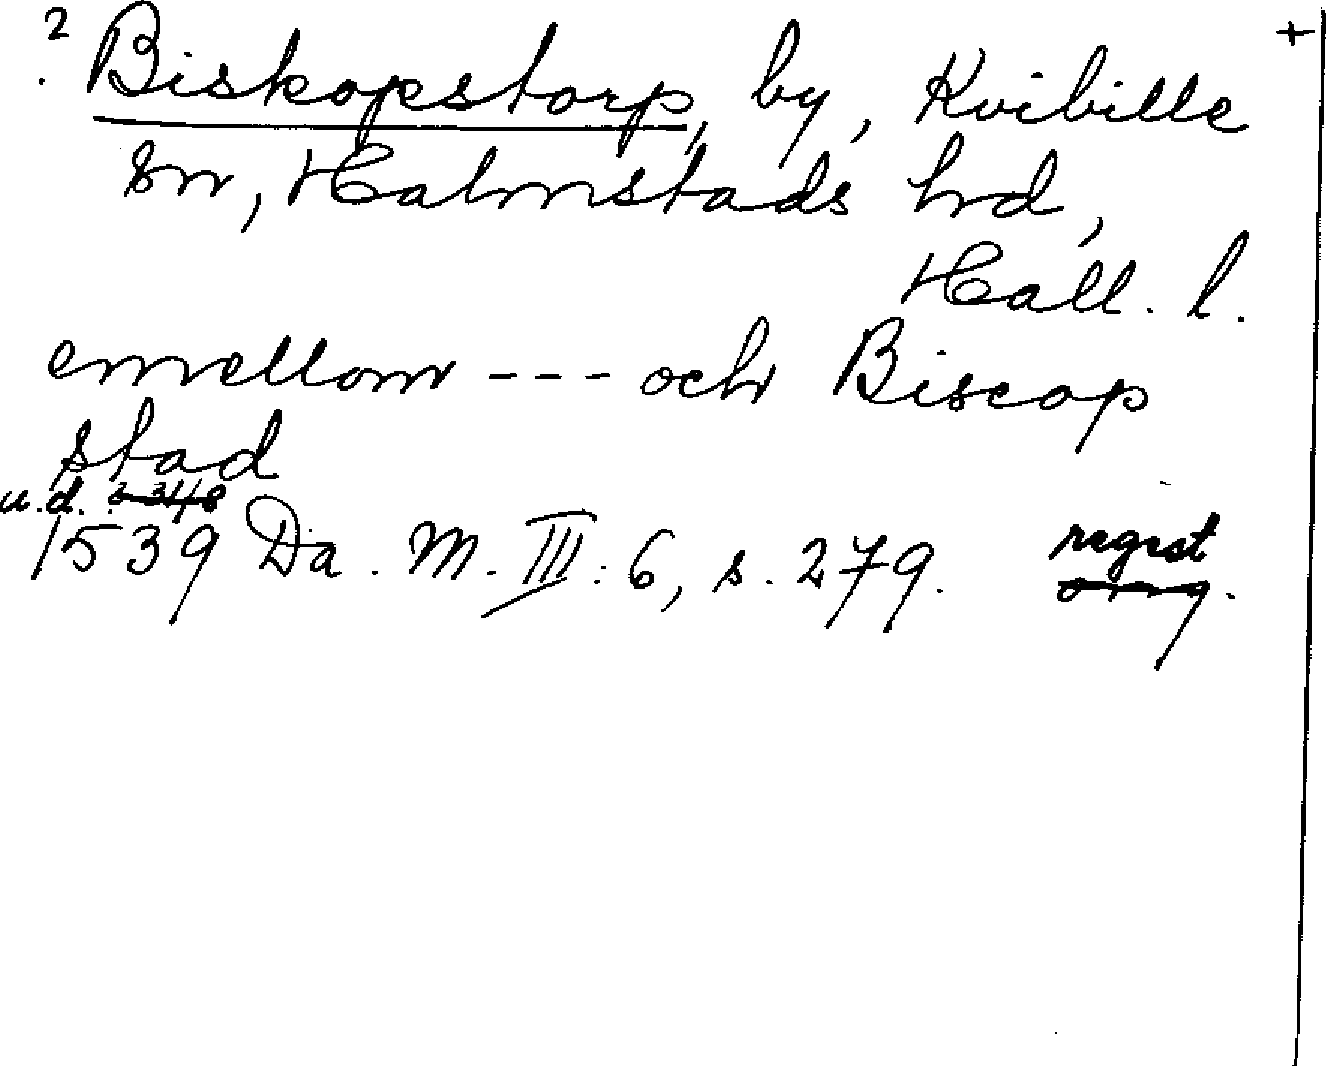 ? Biskopstorp, by, Kvibille +
sn, Halmstads hrd,
Hall. l.
emellom --- och Biscop
stad
u.d.
1539 Da. M. III: 6, s. 279. regest
orig.